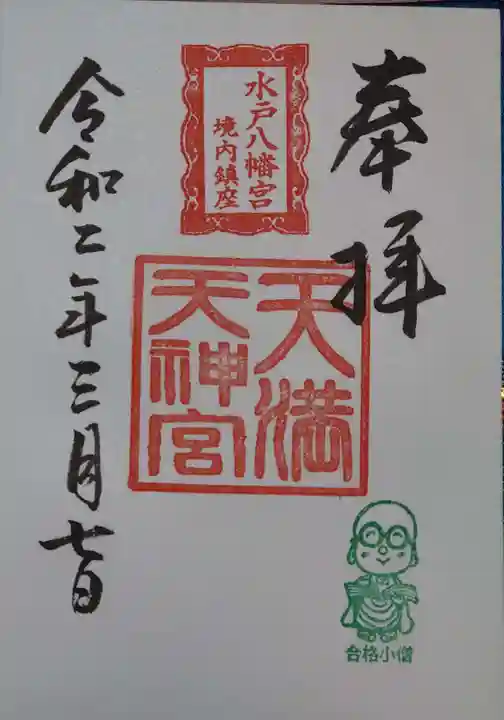 奉拝
水戸八幡宮
境内鎮座
天満
天神宮
令和二年三月七日
合格小僧